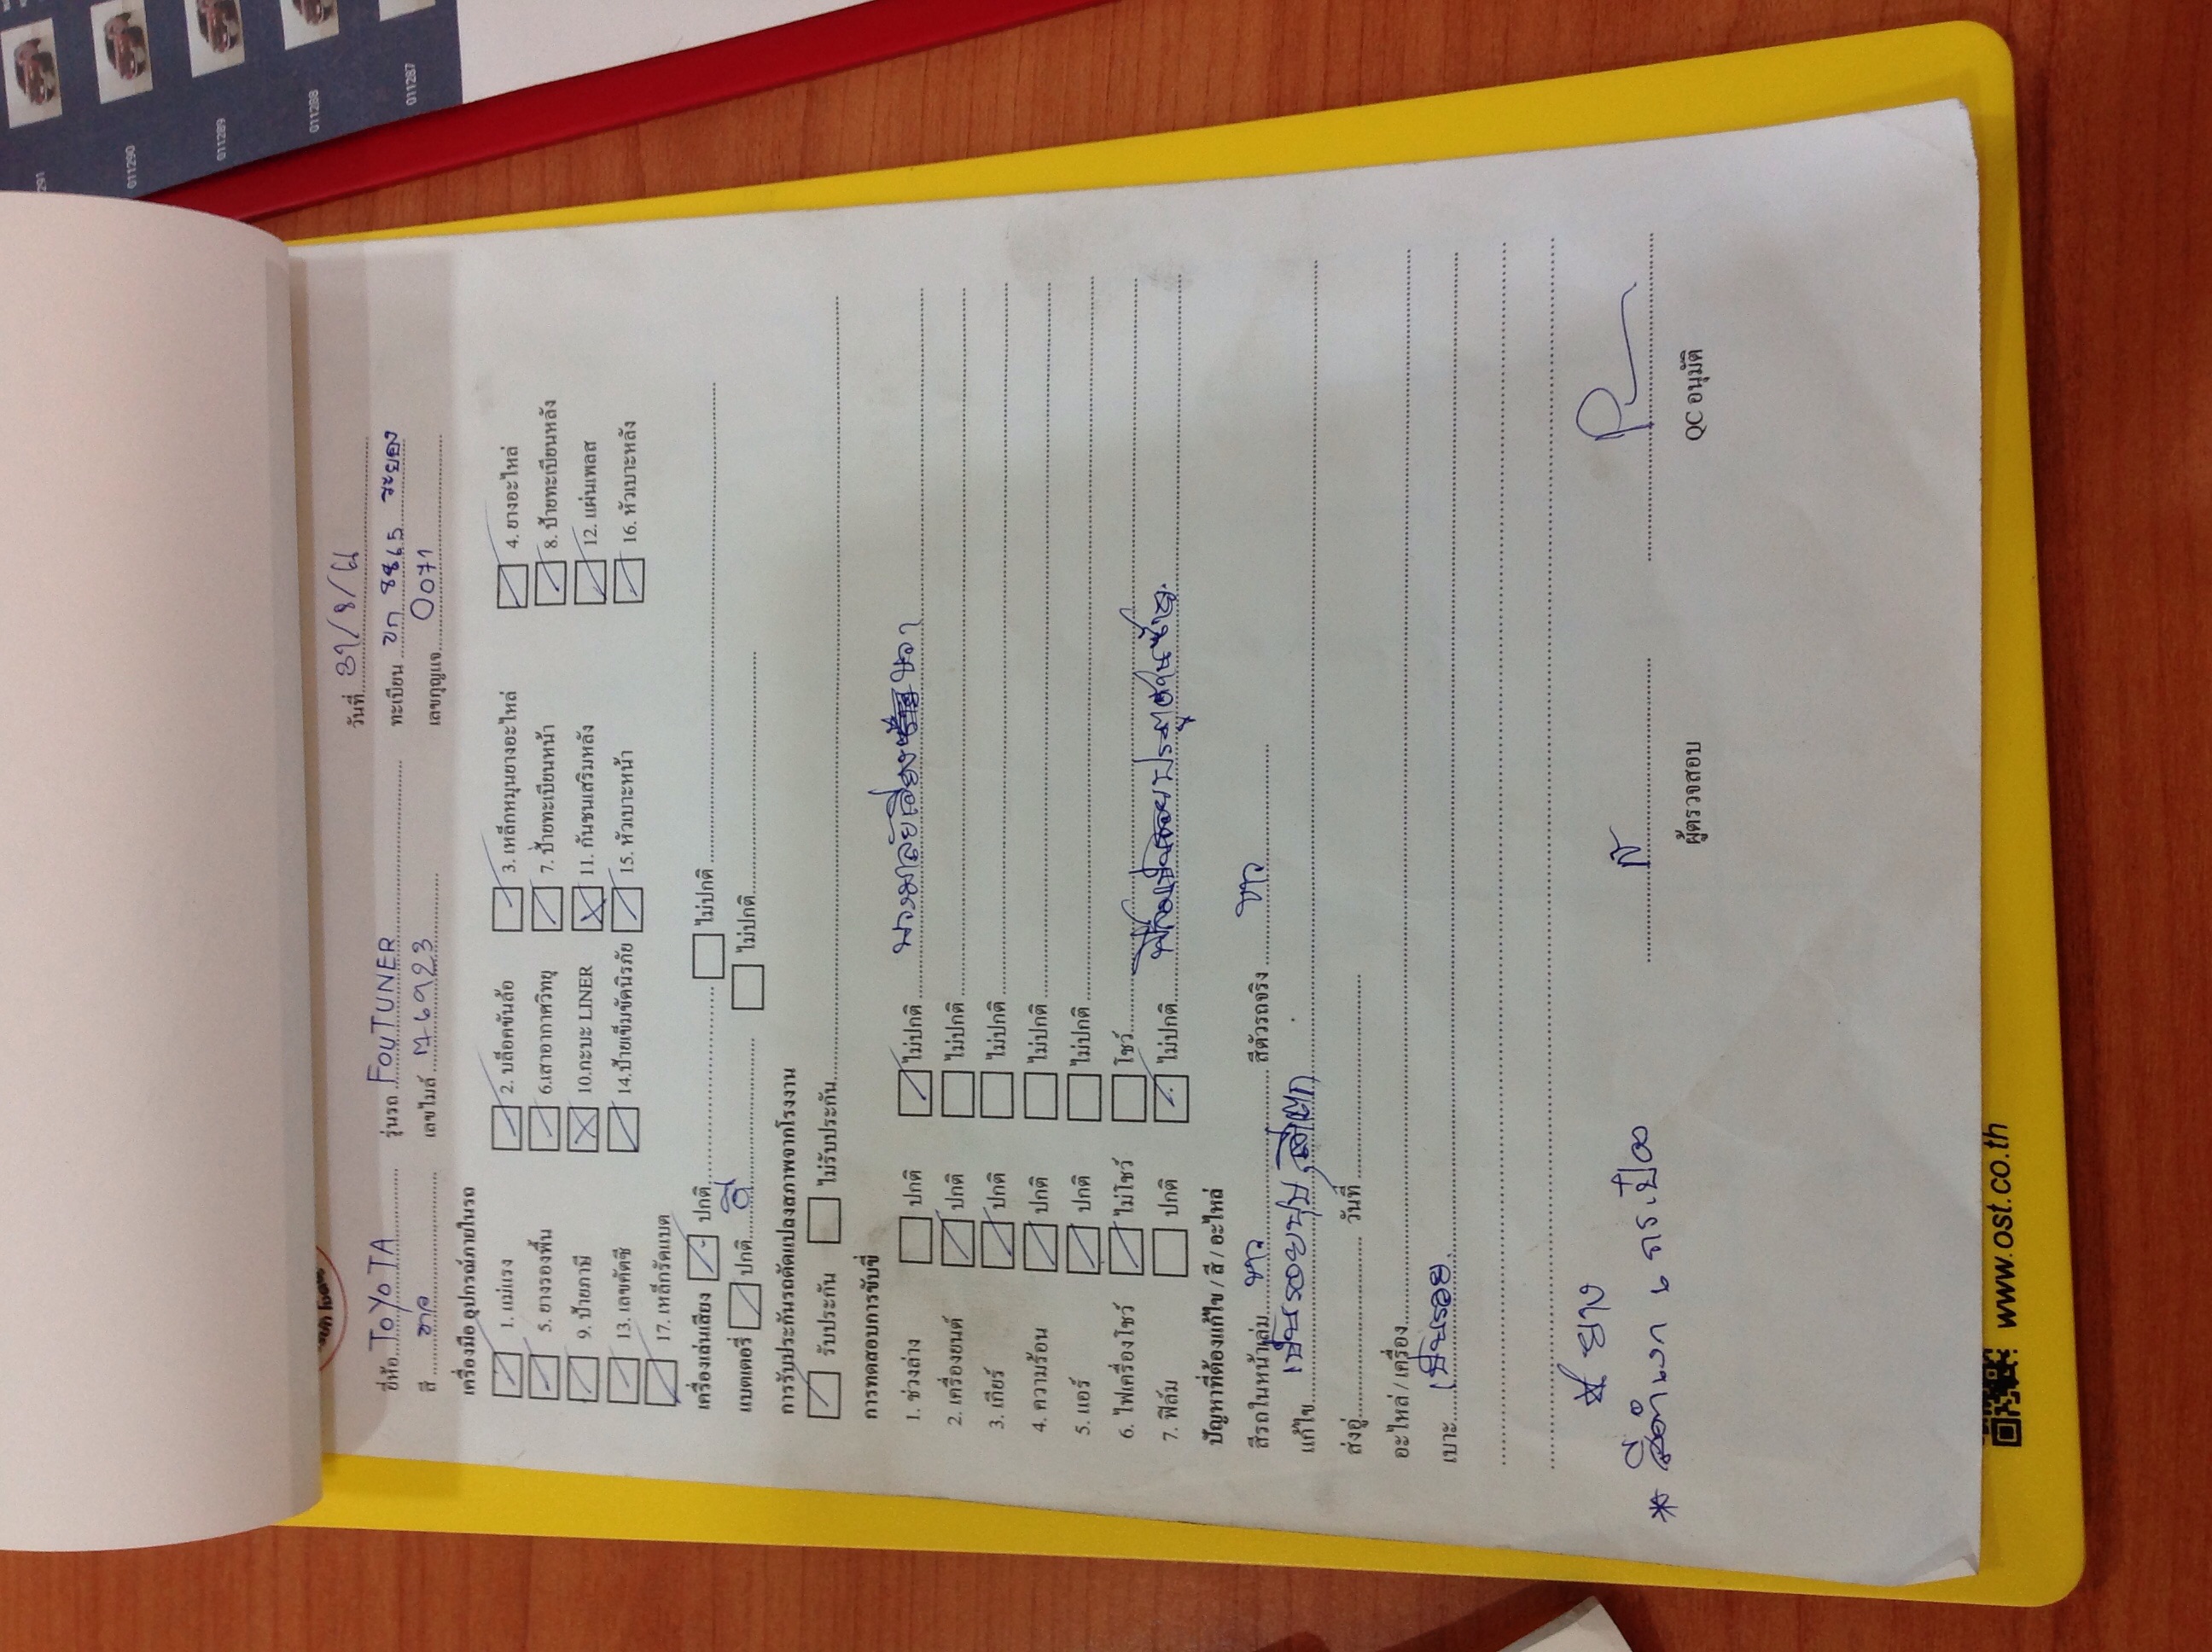 วันที่ 31/8/61
ยี่ห้อ TOYOTA รุ่นรถ FOUTUNER ทะเบียน ขก 8865 ระยอง
สี ขาว เลขไมล์ 76923 เลขกุญแจ 0071
เครื่องมือ อุปกรณ์ภายในรถ
1. แม่แรง 2. บล็อคขันล้อ 3. เหล็กหมุนยางอะไหล่ 4. ยางอะไหล่
5. ยางรองพื้น 6.เสาอากาศวิทยุ 7. ป้ายทะเบียนหน้า 8. ป้ายทะเบียนหลัง
9. ป้ายภาษี 10.กะบะ LINER 11. กันชนเสริมหลัง 12. แผ่นเพลส
13. เลขคัตซี 14.ป้ายเข็มขัดนิรภัย 15. หัวเบาะหน้า 16. หัวเบาะหลัง
17. เหล็กรัดแบต
เครื่องเล่นเสียง ปกติ ไม่ปกติ
แบตเตอรี่ ปกติ ดี ไม่ปกติ
การรับประกันรถดัดแปลงสภาพจากโรงงาน
รับประกัน ไม่รับประกัน
การทดสอบการขับขี่
1. ช่วงล่าง ปกติ ไม่ปกติ พวงมาลัยเอียง ขวา
2. เครื่องยนต์ ปกติ ไม่ปกติ
3. เกียร์ ปกติ ไม่ปกติ
4. ความร้อน ปกติ ไม่ปกติ
5. แอร์ ปกติ ไม่ปกติ
6. ไฟเครื่องโชว์ ไม่โชว์ โชว์
7. ฟิล์ม ปกติ ไม่ปกติ ฟิล์มเป็นรอย
ปัญหาที่ต้องแก้ไข / สี / อะไหล่
สีรถในหน้าเล่ม ขาว สีตัวรถจริง ขาว
แก้ไข เป็นรอยบุบ สีแตก
ส่งอู่ วันที่
อะไหล่ / เครื่อง
เบาะ เป็นรอย
* ยาง
*
ผู้ตรวจสอบ QC อนุมัติ
www.ost.co.th
291
011290
011289
011288
011287